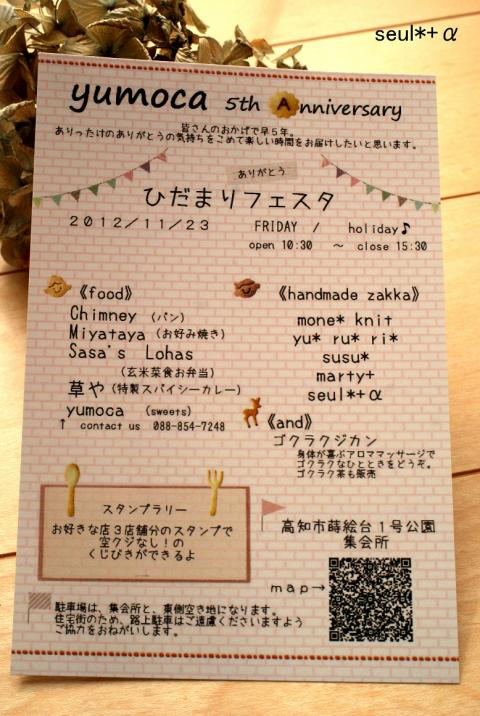 seul*+α
yumoca 5th Anniversary
皆さんのおかげで早5年。
ありったけのありがとうの気持ちをこめて楽しい時間をお届けしたいと思います。
ありがとう
ひだまりフェスタ
2012/11/23 FRIDAY / holiday♪
open 10:30 ～ close 15:30
《food》
Chimney (パン)
Miyataya (お好み焼き)
Sasa's Lohas
(玄米菜食お弁当)
草や (特製スパイシーカレー)
yumoca (sweets)
↑ contact us 088-854-7248
《handmade zakka》
mone* knit
yu* ru* ri*
susu*
marty+
seul*+α
《and》
ゴクラクジカン
身体が喜ぶアロママッサージで
ゴクラクなひとときをどうぞ。
ゴクラク茶も販売
スタンプラリー
お好きな店3店舗分のスタンプで
空クジなし!の
くじびきができるよ
高知市蒔絵台1号公園
集会所
map→
駐車場は、集会所と、東側空き地になります。
住宅街のため、路上駐車はご遠慮くださいますよう
ご協力をおねがいします。